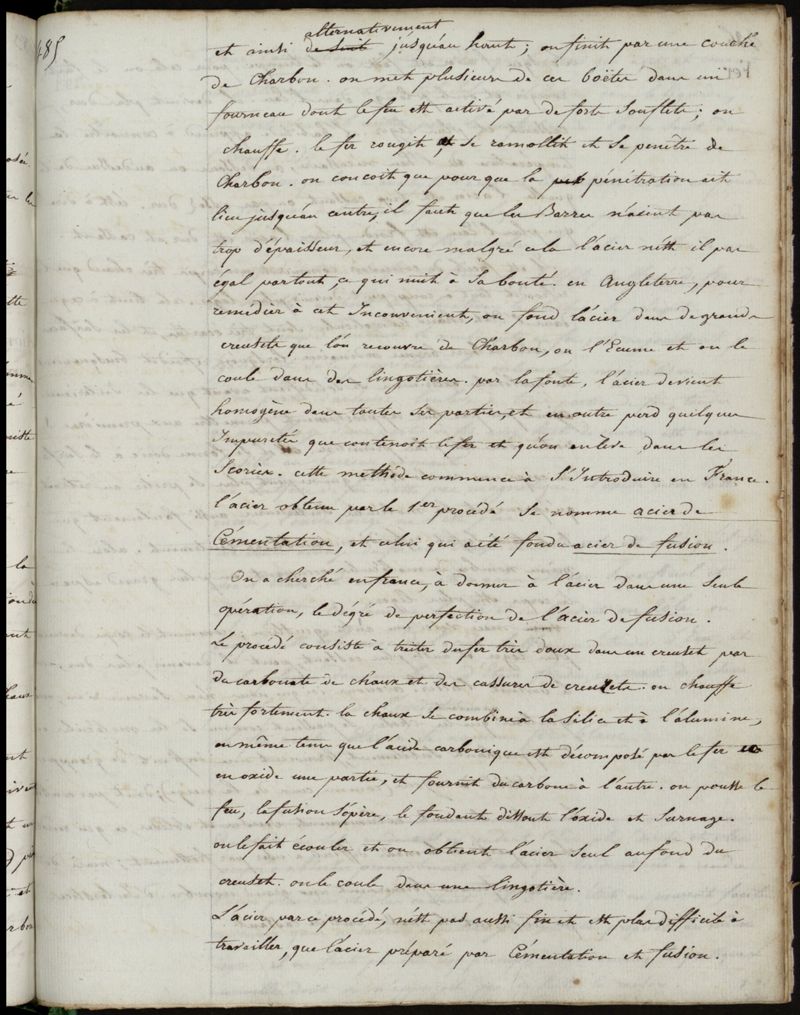 485
alternativement
et ainsi de suite jusqu'au haut; on finit par une couche
de Charbon. on met plusieurs de ces boëtes dans un
fourneau dont le feu est activé par de forts souflets; on
chauffe. le fer rougit et se ramollit et se penêtre de
Charbon. on concoit que pour que la pénétration ait
lieu jusqu'au centre, il faut que les Barres n'aient pas
trop d'épaisseur, et encore malgré cela l'acier n'est il pas
égal partout, ce qui nuit à sa bonté. en Angleterre, pour
remedier à cet Inconvenient, on fond l'acier dans de grands
creusets que l'on recouvre de Charbon, on l'Ecume et on le
coule dans des lingotières. par la fonte, l'acier devient
homogène dans toutes ses parties, et en outre perd quelques
Impuretés que contenoit le fer et qu'on enlève dans les
Scories. cette methode commence à S'Introduire en France.
l'acier obtenu par le 1er procédé se nomme acier de
Cémentation, et celui qui a été fondu acier de fusion.
On a cherché en france, à donner à l'acier dans une seule
opération, le dégré de perfection de l'acier de fusion.
Le procédé consiste à traiter du fer très doux dans un creuset par
du carbonate de chaux et des cassures de creusets. on chauffe
très fortement. la chaux se combine à la silice et à l'alumine,
en même tems que l'acide carbonique est décomposé par le fer
en oxide une partie, et fournit du carbone à l'autre. on pousse le
feu, la fusion s'opère, le fondant dissout l'oxide et surnage.
on le fait écouler et on obtient l'acier seul au fond du
creuset. on le coule dans une lingotière.
L'acier par ce procédé, n'est pas aussi fin et est plus difficile à
travailler, que l'acier préparé par Cémentation et fusion.